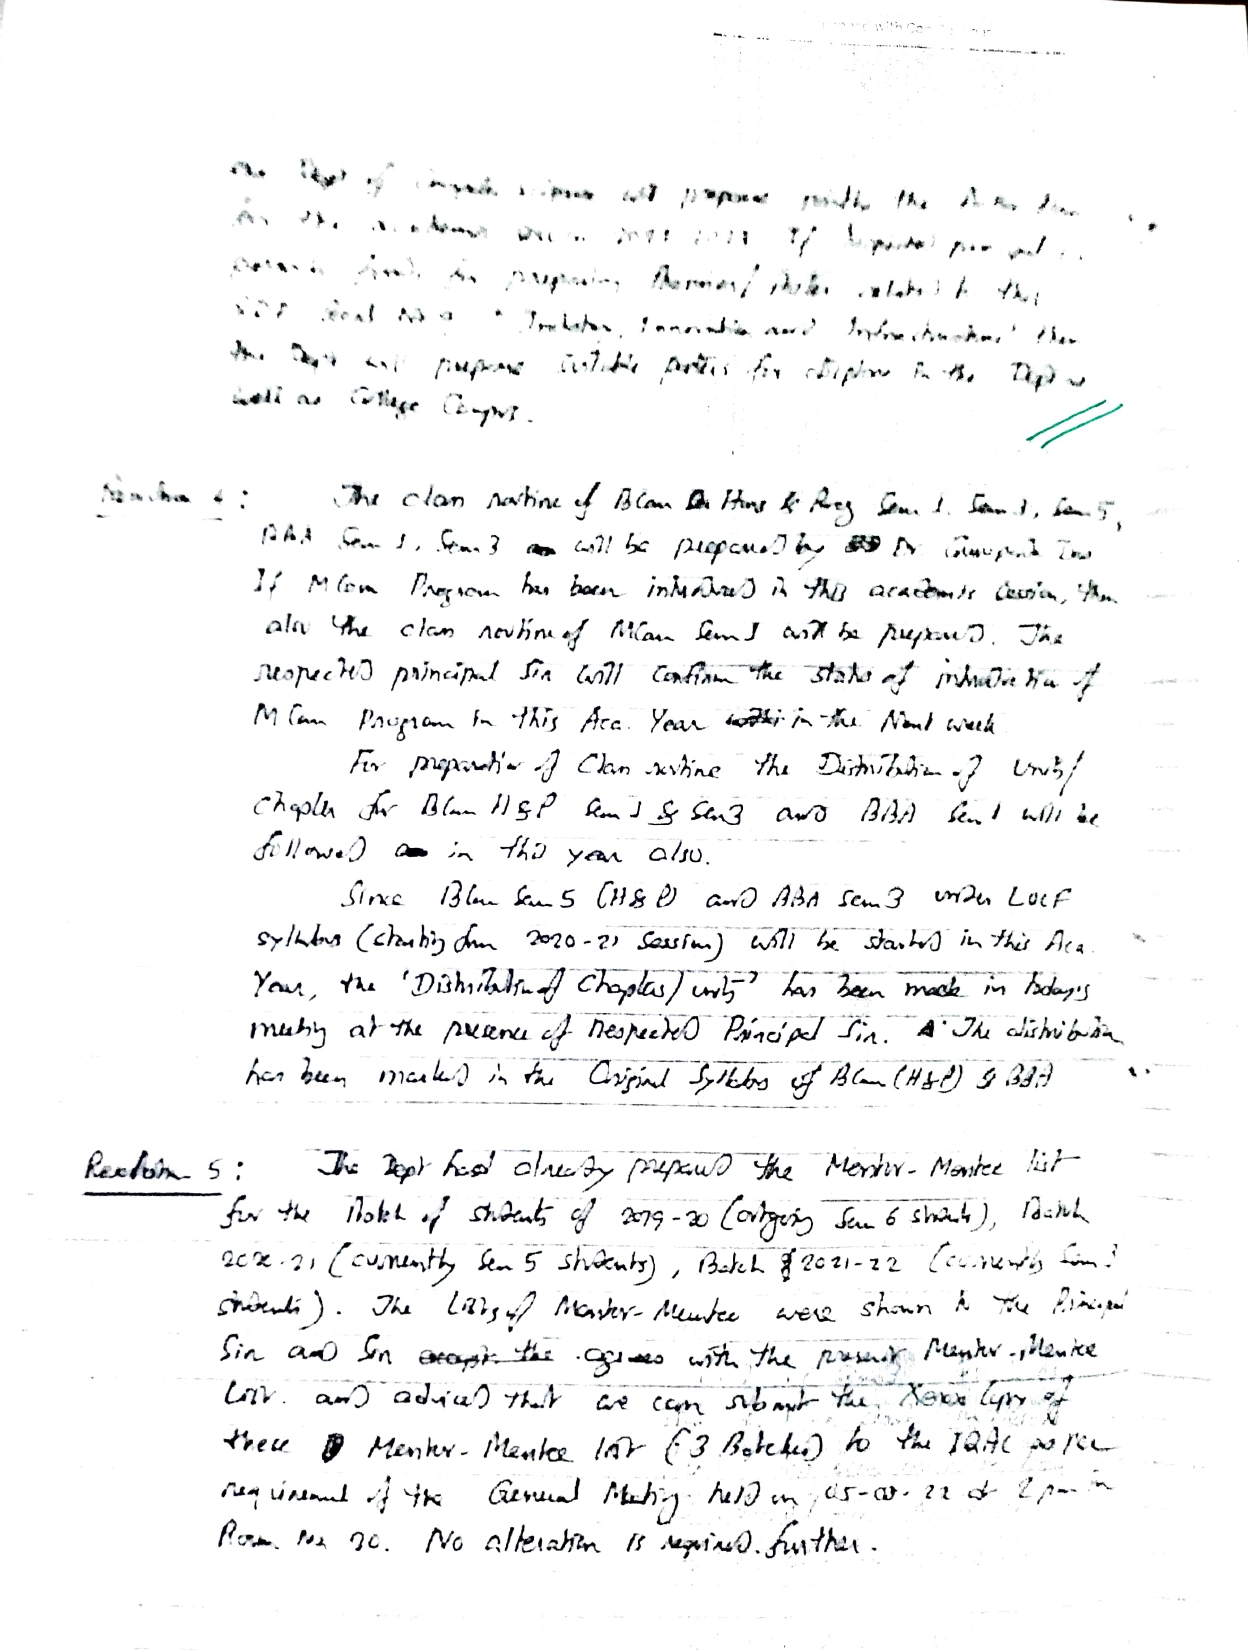 the Dept of will prepare the
for the academic If respected principal
for preparing related to this
Goal No 9 " Innovation and Infrastructure" then
the Dept will prepare suitable posters for display in the Dept as
well as College Campus.
Resolution 4 : The class routine of BCom Hons & Prog Sem 1, Sem 3, Sem 5,
BBA Sem 1, Sem 3 will be prepared by Dr
If MCom Program has been introduced in this academic session, then
also the class routine of MCom Sem 1 will be prepared. The
respected principal Sir will confirm the status of introduction of
MCom Program in this Aca. Year in the Next week
For preparation of Class routine the Distribution of Units/
Chapter for BCom H&P Sem 1 & Sem 3 and BBA Sem 1 will be
followed in this year also.
Since BCom Sem 5 (H&P) and BBA Sem 3 under LOCF
syllabus (starting from 2020-21 session) will be started in this Aca.
Year, the 'Distribution of Chapters/units' has been made in today's
meeting at the presence of Respected Principal Sir. The distribution
has been marked in the Original Syllabus of BCom (H&P) & BBA
Resolution 5 : The Dept had already prepared the Mentor-Mentee list
for the Batch of students of 2019-20 (outgoing Sem 6 students), Batch
2020-21 (currently Sem 5 students), Batch 2021-22 (currently Sem 3
students). The Lists of Mentor-Mentee were shown to the Principal
Sir and Sir agrees with the present Mentor-Mentee
List. and advised that we can submit the Xerox Copy of
these Mentor-Mentee list (3 Batches) to the IQAC as per
requirement of the General Meeting held on 05-08-22 at 2 pm in
Room No 20. No alteration is required further.